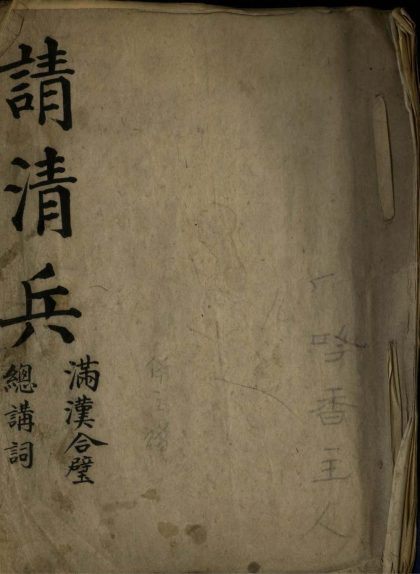 請清兵
滿漢合璧
總講詞
吟香主人